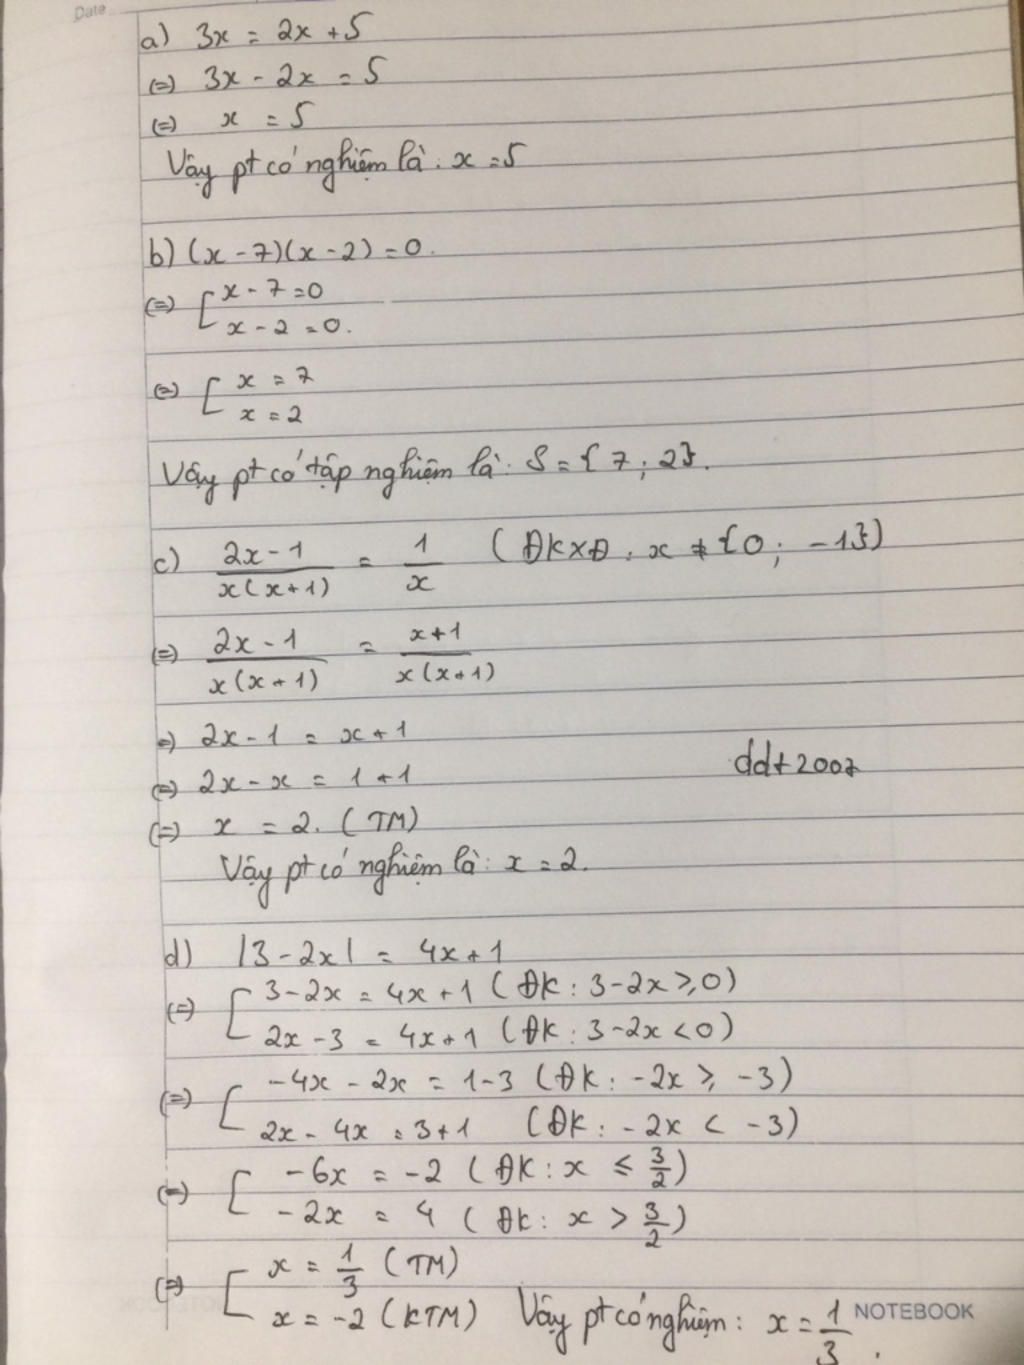 Date
a) 3x = 2x + 5
(=) 3x - 2x = 5
(=) x = 5
Vậy pt có nghiệm là: x = 5
b) (x - 7)(x - 2) = 0.
(=) [ x - 7 = 0
x - 2 = 0.
(=) [ x = 7
x = 2
Vậy pt có tập nghiệm là: S = {7; 2}.
c) \frac{2x - 1}{x(x + 1)} = \frac{1}{x} (ĐKXĐ: x ≠ {0; -1})
(=) \frac{2x - 1}{x(x + 1)} = \frac{x + 1}{x(x + 1)}
=) 2x - 1 = x + 1
(=) 2x - x = 1 + 1
ddt2007
(=) x = 2. (TM)
Vậy pt có nghiệm là: x = 2.
d) |3 - 2x| = 4x + 1
(=) [ 3 - 2x = 4x + 1 (ĐK: 3 - 2x ≥ 0)
2x - 3 = 4x + 1 (ĐK: 3 - 2x < 0)
(=) [ -4x - 2x = 1 - 3 (ĐK: -2x ≥ -3)
2x - 4x = 3 + 1 (ĐK: -2x < -3)
(=) [ -6x = -2 (ĐK: x ≤ \frac{3}{2})
-2x = 4 (ĐK: x > \frac{3}{2})
(=) [ x = \frac{1}{3} (TM)
x = -2 (KTM) Vậy pt có nghiệm: x = \frac{1}{3}.
NOTEBOOK